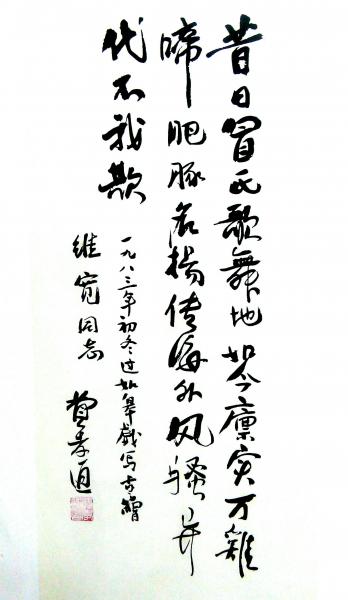 昔日冒氏歌舞地如今廪实万雞
啼肥豚名揚传海外风骚异
代不我欺
一九八三年初冬过如皋戏写赠
维宽同志
费孝通